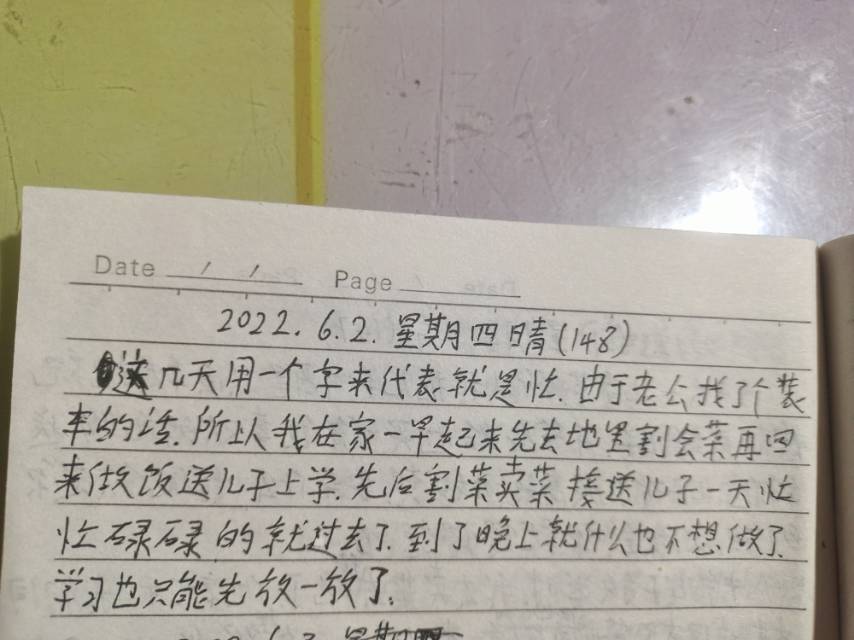 Date / / Page
2022.6.2.星期四晴(148)
这几天用一个字来代表就是忙.由于老公找了个装
车的活.所以我在家一早起来先去地里割会菜再回
来做饭送儿子上学.先后割菜卖菜接送儿子一天忙
忙碌碌的就过去了.到了晚上就什么也不想做了.
学习也只能先放一放了.